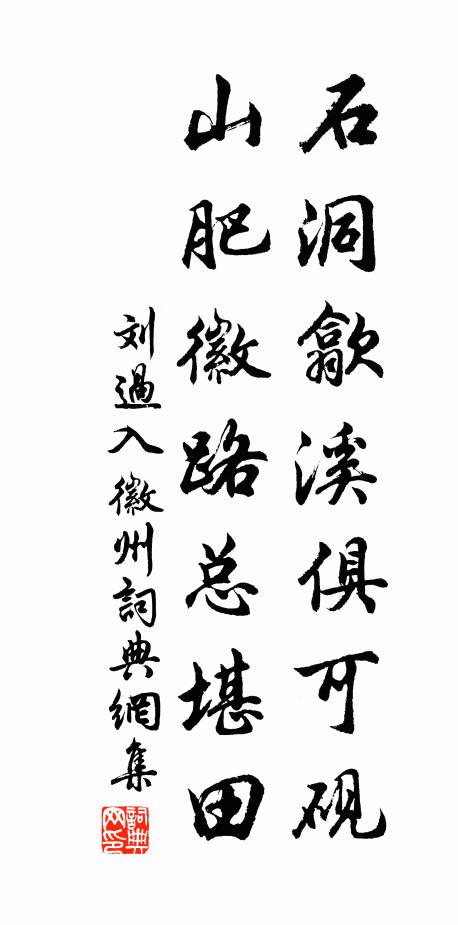 石洞歙溪俱可砚
山肥徽路总堪田
刘過入徽州詞典網集
詞典网印